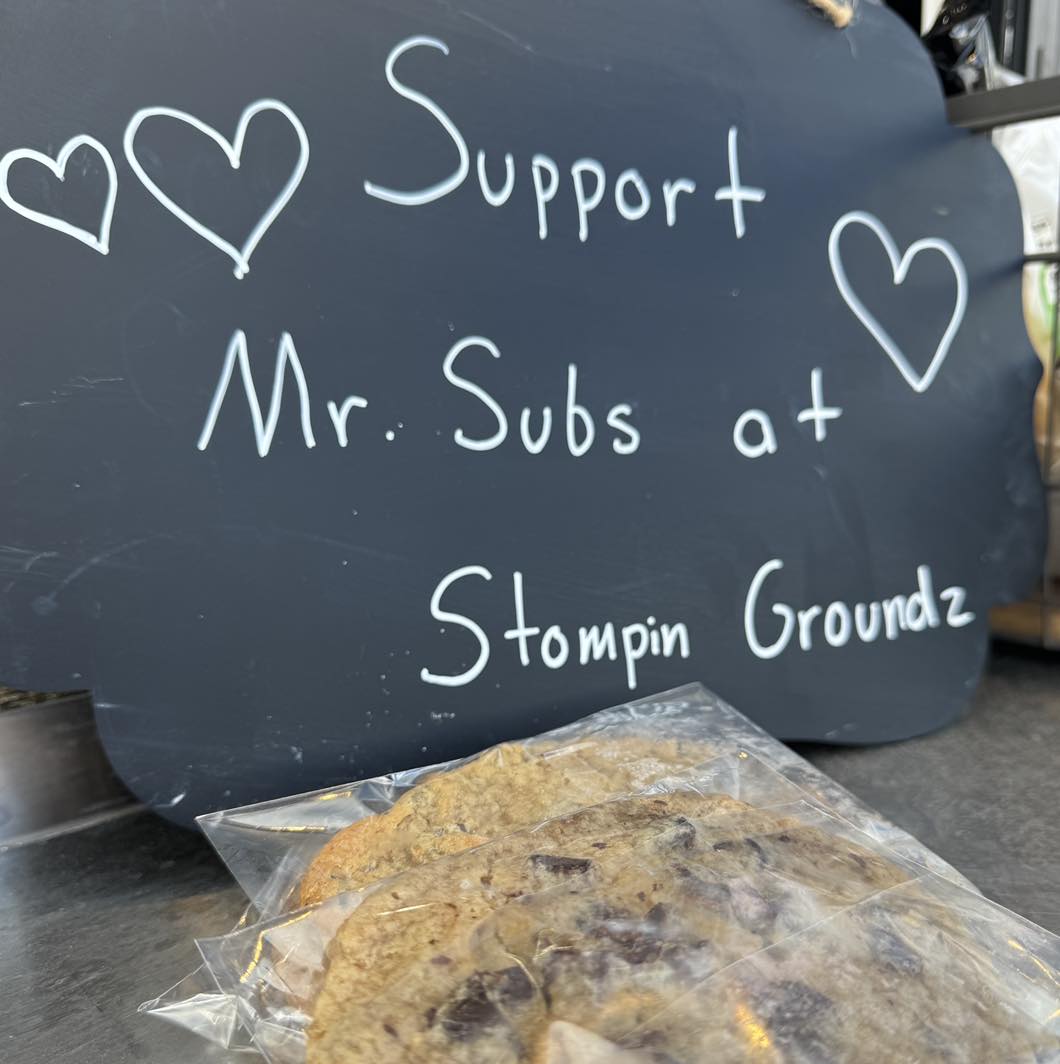 Support
Mr. Subs at
Stompin Groundz